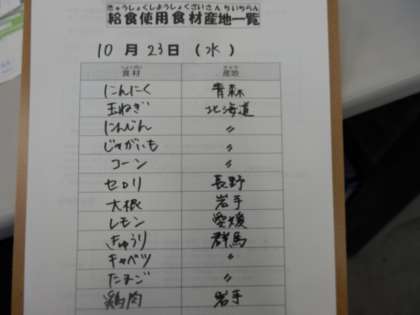 きゅうしょくしようしょくざいさんちいちらん
給食使用食材産地一覧
10月23日(水)
食材 産地
にんにく 青森
玉ねぎ 北海道
にんじん 〃
じゃがいも 〃
コーン 〃
セロリ 長野
大根 岩手
レモン 愛媛
きゅうり 群馬
キャベツ 〃
たまご 〃
鶏肉 岩手